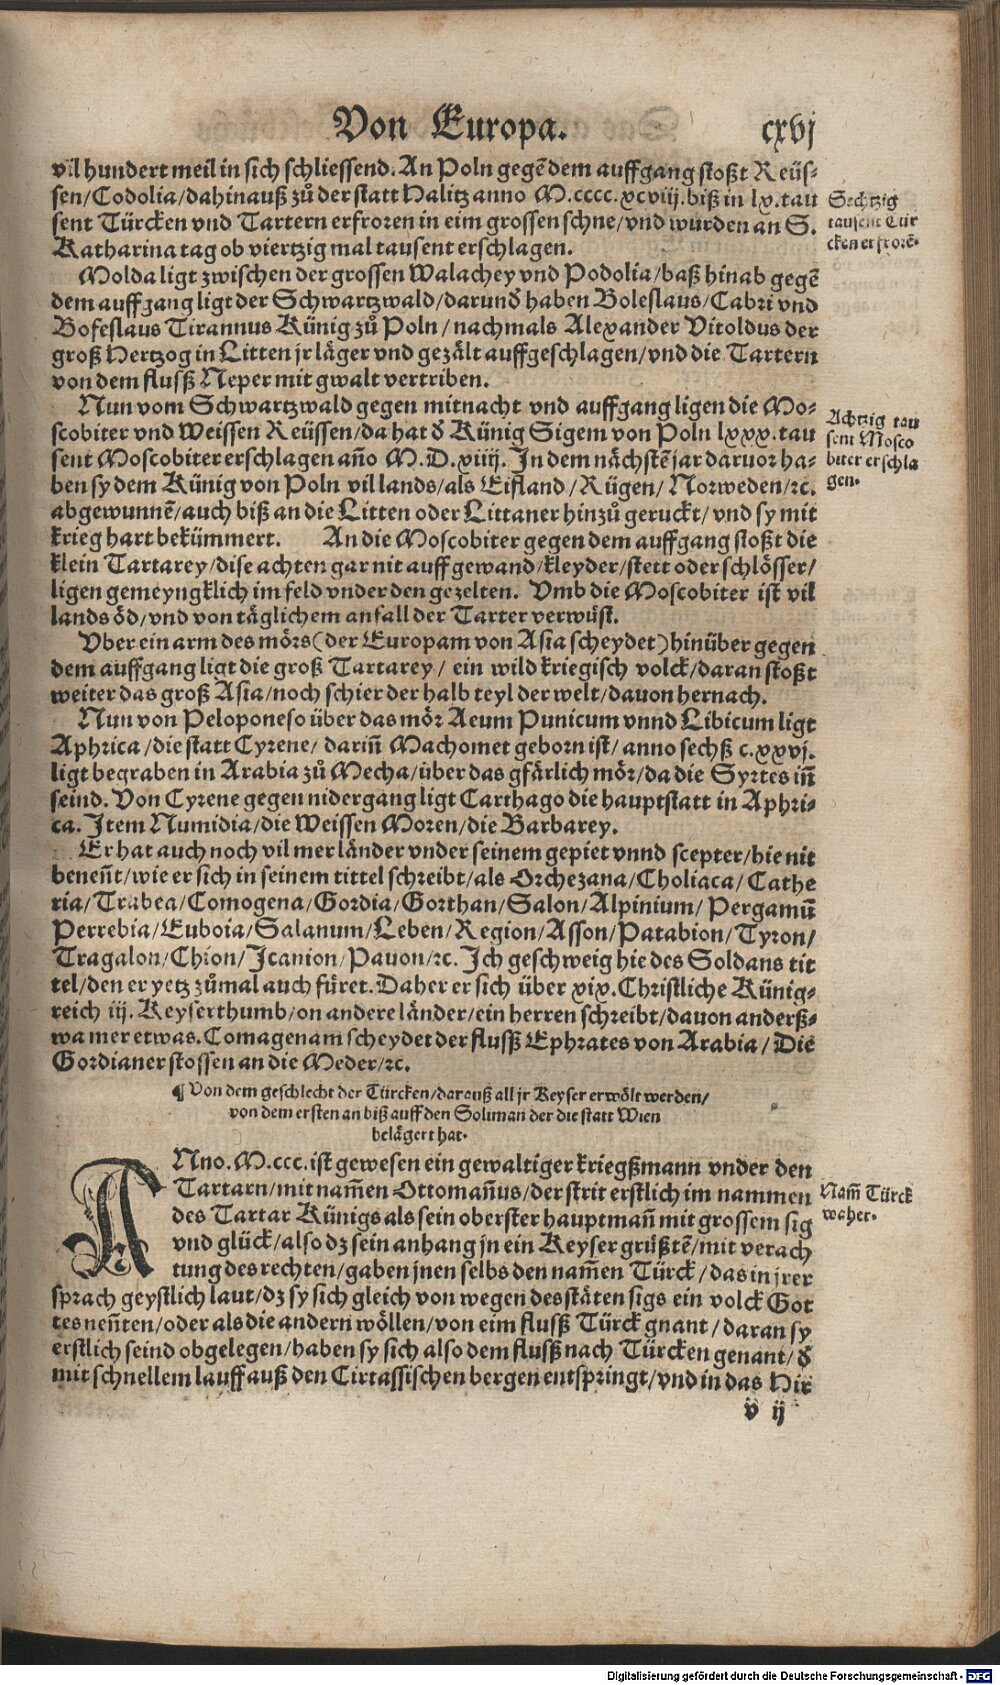 Von Europa. cxvj
vil hundert meil in sich schliessend. An Poln gegẽ dem auffgang stoßt Reüs-
sen/Codolia/dahinauß zů der statt Halitz anno M.cccc.xcviij.biß in lx.tau
sent Türcken vnd Tartern erfroren in eim grossen schne/vnd wurden an S.
Katharina tag ob viertzig mal tausent erschlagen.
Sechtzig
tausent Tür
cken erfrorẽ.
Molda ligt zwischen der grossen Walachey vnd Podolia/baß hinab gegẽ
dem auffgang ligt der Schwartzwald/darunđ haben Boleslaus/Cabri vnd
Bofeslaus Tirannus Künig zů Poln/nachmals Alexander Vitoldus der
groß Hertzog in Litten jr läger vnd gezält auffgeschlagen/vnd die Tartern
von dem flusß Neper mit gwalt vertriben.
Nun vom Schwartzwald gegen mitnacht vnd auffgang ligen die Mo-
scobiter vnd Weissen Reüssen/da hat đ Künig Sigem von Poln lxxx.tau
sent Moscobiter erschlagen año M.D.xiiij. In dem nächstẽ jar daruor ha-
ben sy dem Künig von Poln vil lands/als Eifland/Rügen/Norweden/ꝛc.
abgewunnẽ/auch biß an die Litten oder Littaner hinzů geruckt/vnd sy mit
krieg hart bekümmert. An die Moscobiter gegen dem auffgang stoßt die
klein Tartarey/dise achten gar nit auff gewand/kleyder/stett oder schlösser/
ligen gemeyngklich im feld vnder den gezelten. Vmb die Moscobiter ist vil
lands öd/vnd von täglichem anfall der Tarter verwüst.
Achtzig tau
sent Mosco
biter erschla
gen.
Vber ein arm des mörs (der Europam von Asia scheydet) hinüber gegen
dem auffgang ligt die groß Tartarey/ ein wild kriegisch volck/daran stoßt
weiter das groß Asia/noch schier der halb teyl der welt/davon hernach.
Nun von Peloponeso über das mör Aeum Punicum vnnd Libicum ligt
Aphrica/die statt Cyrene/ dariñ Machomet geborn ist/anno sechß c.xxvj.
ligt begraben in Arabia zů Mecha/über das gfärlich mör/da die Syrtes iñ
seind. Von Cyrene gegen nidergang ligt Carthago die hauptstatt in Aphri-
ca. Item Numidia/die Weissen Moren/die Barbarey.
Er hat auch noch vil mer länder vnder seinem gepiet vnnd scepter/hie nit
beneñt/wie er sich in seinem tittel schreibt/als Orchezana/Choliaca/Cathe
ria/Trabea/Comogena/Gordia/Gorthan/Salon/Alpinium/Pergamũ
Perrebia/Euboia/Salanum/Leben/Region/Asson/Patabion/Tyron/
Tragalon/Chion/Icanion/Pauon/ꝛc. Ich geschweig hie des Soldans tit
tel/den er yetz zůmal auch füret. Daher er sich über xix. Christliche Künig-
reich iij. Keyserthumb/on andere länder/ein herren schreibt/davon anderß-
wa mer etwas. Comagenam scheydet der flusß Ephrates von Arabia/Die
Gordianer stossen an die Meder/ꝛc.
¶ Von dem geschlecht der Türcken/darauß all jr Keyser erwölt werden/
von dem ersten an biß auff den Soliman der die statt Wien
belägert hat.
ANno. M.ccc. ist gewesen ein gewaltiger kriegßmann vnder den
Tartarn/mit nam̃en Ottomañus/der strit erstlich im nammen
des Tartar Künigs als sein oberster hauptmañ mit grossem sig
vnd glück/also dz sein anhang jn ein Keyser grüßtẽ/mit verach
tung des rechten/gaben jnen selbs den nam̃en Türck/das in jrer
sprach geystlich laut/dz sy sich gleich von wegen des stäten sigs ein volck Got
tes neñten/oder als die andern wöllen/von eim flusß Türck gnant/daran sy
erstlich seind obgelegen/haben sy sich also dem flusß nach Türcken genant/đ
mit schnellem lauff auß den Cirtassischen bergen entspringt/vnd in das Hir
Nam̃ Türck
waher.
v ij
Digitalisierung gefördert durch die Deutsche Forschungsgemeinschaft - DFG